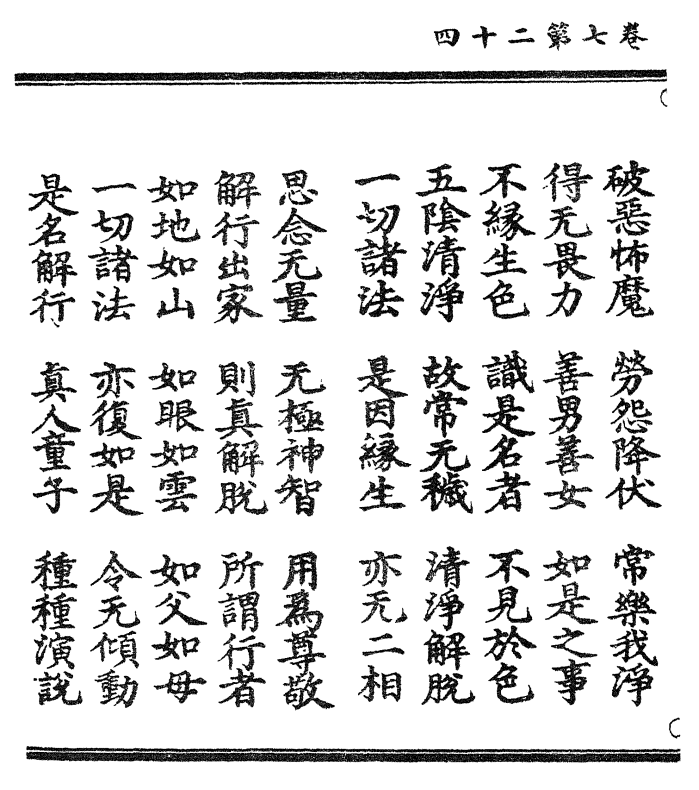 卷七第二十四
破惡怖魔 勞怨降伏 常樂我淨
得无畏力 善男善女 如是之事
不緣生色 識是名者 不見於色
五陰清淨 故常无穢 清淨解脫
一切諸法 是因緣生 亦无二相
思念无量 无極神智 用爲尊敬
解行出家 則真解脫 所謂行者
如地如山 如眼如雲 如父如母
一切諸法 亦復如是 令无傾動
是名解行 真人童子 種種演說